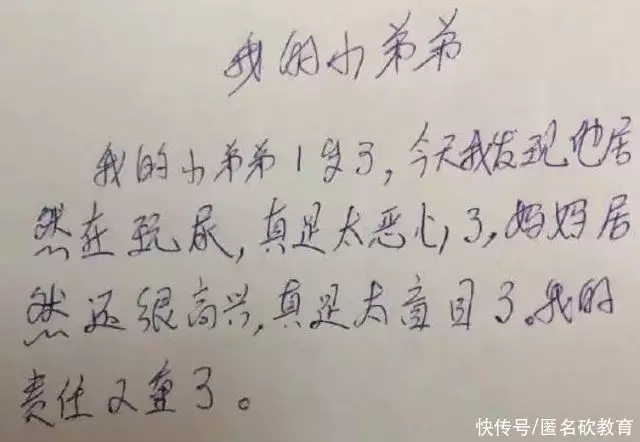 我的小弟弟
我的小弟弟1岁了,今天我发现他居
然在玩尿,真是太恶心了,妈妈居
然还很高兴,真是太盲目了。我的
责任又重了。
快传号/匿名砍教育